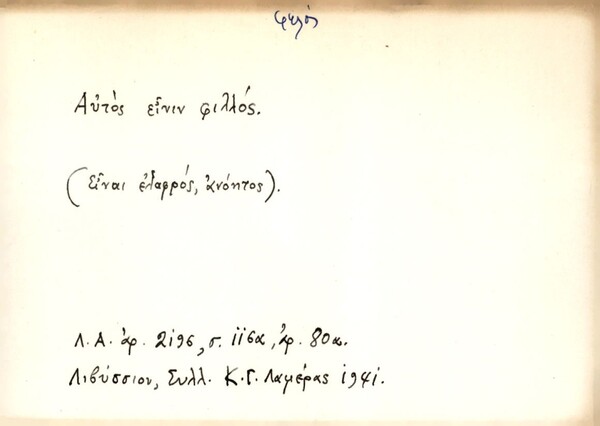 ψιλός
Αὐτὸς εἶνιν φιλλός.
(Εἶναι ἐλαφρός, ἀνόητος).
Λ.Α. ἀρ. 2196, σ. 116α, ἀρ. 80α.
Λιβύσσιον, Συλλ. Κ.Γ. Λαμέρας 1941.